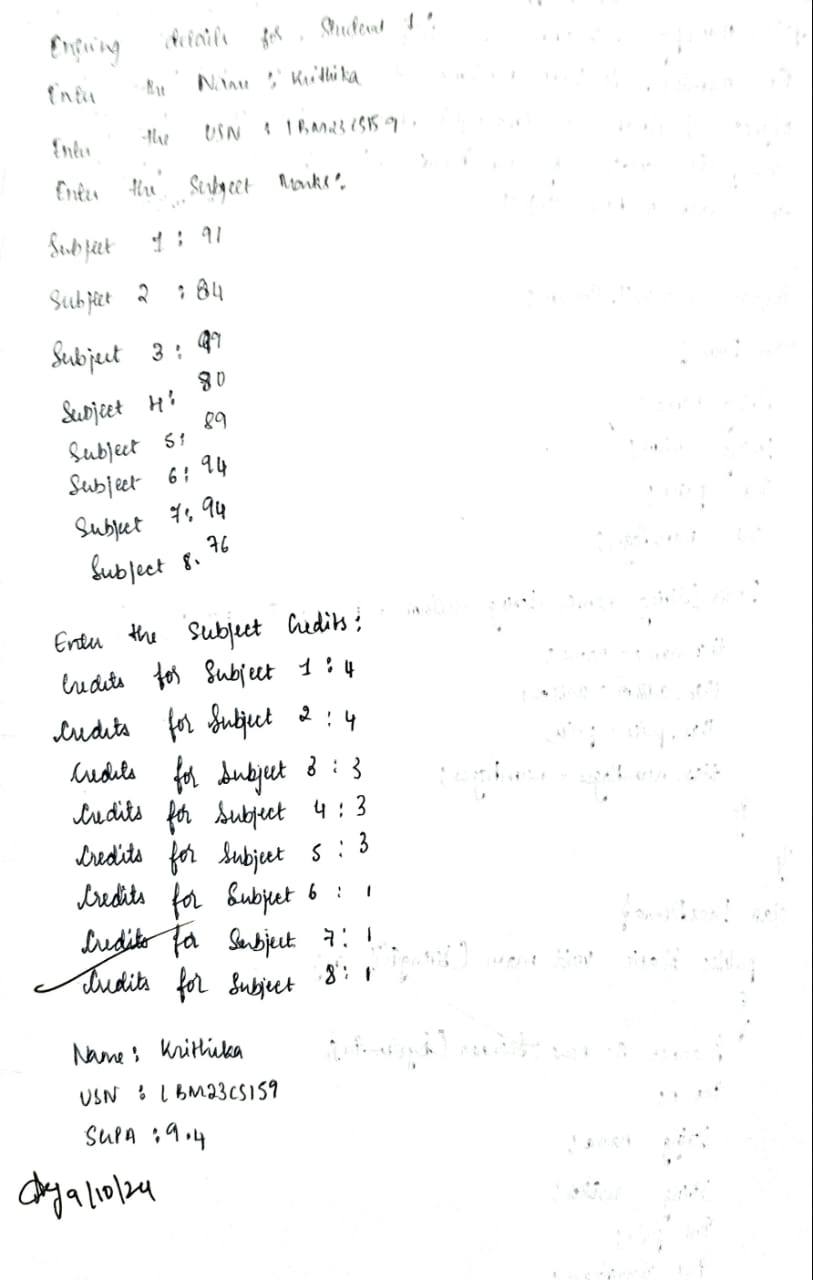 Enering details for Student 1:
Enter the Name : Krithika
Enter the USN : 1BM23CS159
Enter the Subject Marks:
Subject 1 : 91
Subject 2 : 84
Subject 3 :
Subject 4: 80
Subject 5: 89
Subject 6: 94
Subject 7: 94
Subject 8. 76
Enter the Subject Credits:
Credits for Subject 1 : 4
Credits for Subject 2 : 4
Credits for Subject 3 : 3
Credits for Subject 4 : 3
Credits for Subject 5 : 3
Credits for Subject 6 : 1
Credits for Subject 7: 1
Credits for Subject 8: 1
Name: Krithika
USN : 1BM23CS159
SGPA : 9.4
9/10/24